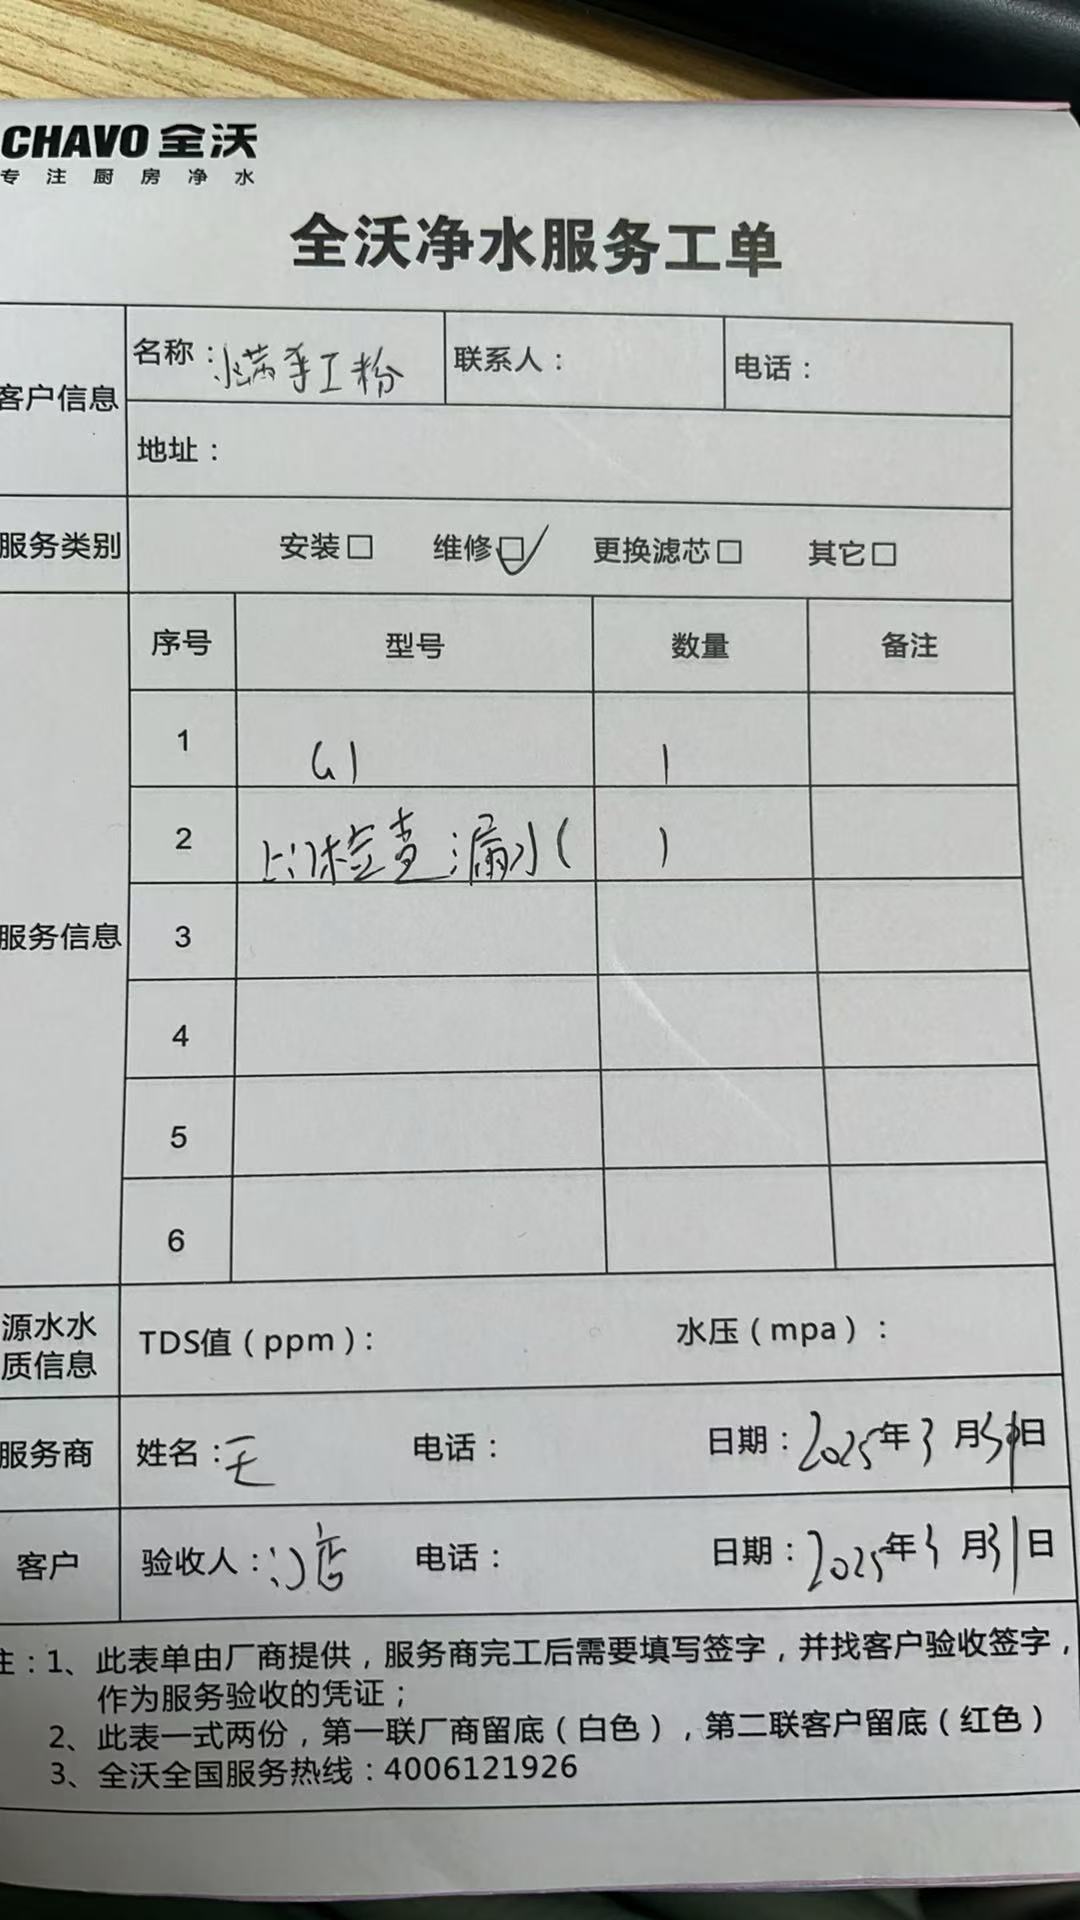 CHAVO 全沃
专注厨房净水
全沃净水服务工单
客户信息
名称：小满手工粉 联系人： 电话：
地址：
服务类别 安装□ 维修☑ 更换滤芯□ 其它□
服务信息
序号 型号 数量 备注
1 G1 1
2 上门检查漏水( 1
3
4
5
6
源水水质信息 TDS值（ppm）： 水压（mpa）：
服务商 姓名：王 电话： 日期：2025年3月31日
客户 验收人：门店 电话： 日期：2025年3月31日
注：1、此表单由厂商提供，服务商完工后需要填写签字，并找客户验收签字，
作为服务验收的凭证；
2、此表一式两份，第一联厂商留底（白色），第二联客户留底（红色）
3、全沃全国服务热线：4006121926